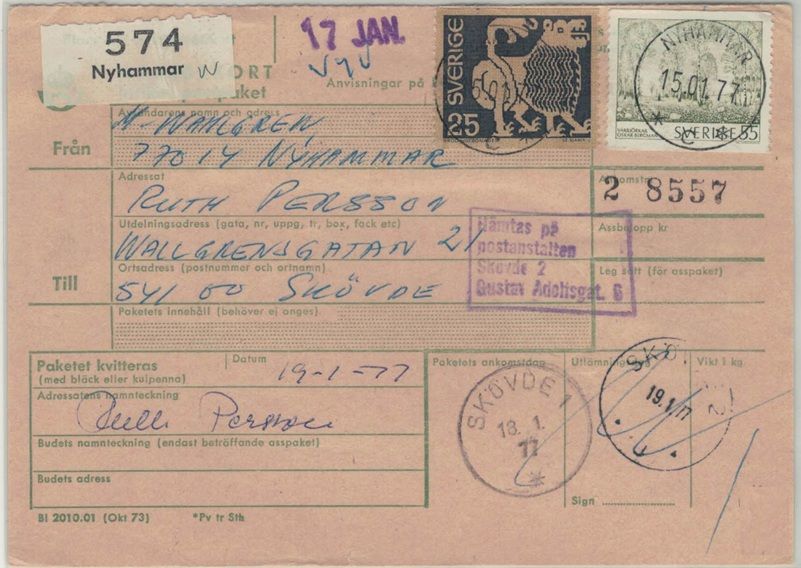 574
Nyhammar W
17 JAN.
ORT
paket
Anvisningar på
SVERIGE
25
NYHAMMAR
15.01.77
SVERIGE 85
Avsändarens namn och adress
Från
WALLGREN,
77014 NYHAMMAR
Adressat
RUTH PERSSON
Ankomstnr
2 8557
Utdelningsadress (gata, nr, uppg, tr, box, fack etc)
Assbelopp kr
WALLGRENSGATAN 21
Hämtas på
postanstalten
Skövde 2
Gustav Adolfsgat. 6
Till
Ortsadress (postnummer och ortnamn)
Leg sätt (för asspaket)
541 00 SKÖVDE
Paketets innehåll (behöver ej anges)
Paketet kvitteras
(med bläck eller kulpenna)
Datum
19-1-77
Paketets ankomstdag
Utlämningsdag
Vikt i kg
Adressatens namnteckning
Ruth Persson
SKÖVDE 1
18.1.
77
19.1.77
Budets namnteckning (endast beträffande asspaket)
Budets adress
Sign
Bl 2010.01 (Okt 73)
*Pv tr Sth